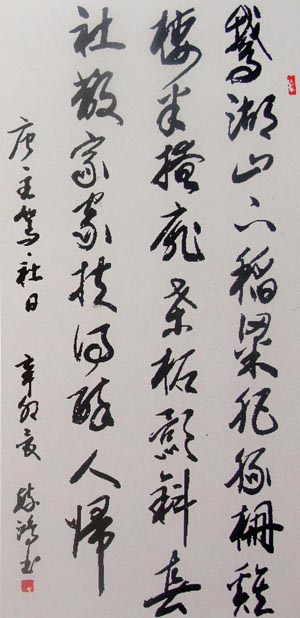 鵞湖山下稻粱肥豚柵雞
棲半掩扉桑柘影斜春
社散家家扶得醉人歸
唐王駕·社日 辛卯夏 鴻书